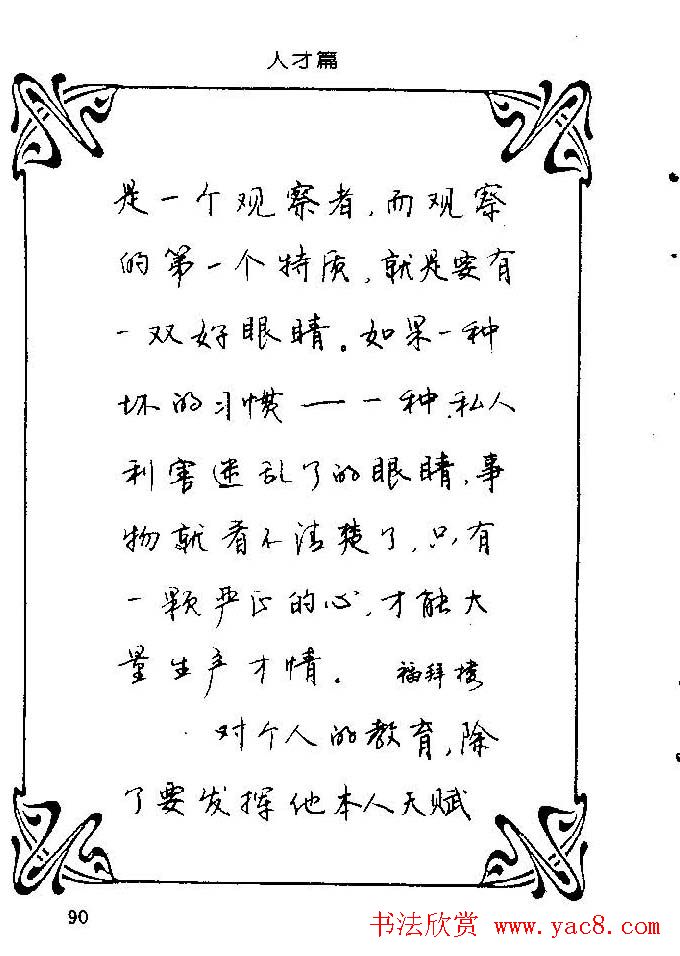 人才篇
是一个观察者，而观察
的第一个特质，就是要有
一双好眼睛。如果一种
坏的习惯——一种私人
利害迷乱了的眼睛，事
物就看不清楚了，只有
一颗严正的心，才能大
量生产才情。 福拜楼
对个人的教育，除
了要发挥他本人天赋
90
书法欣赏 www.yac8.com